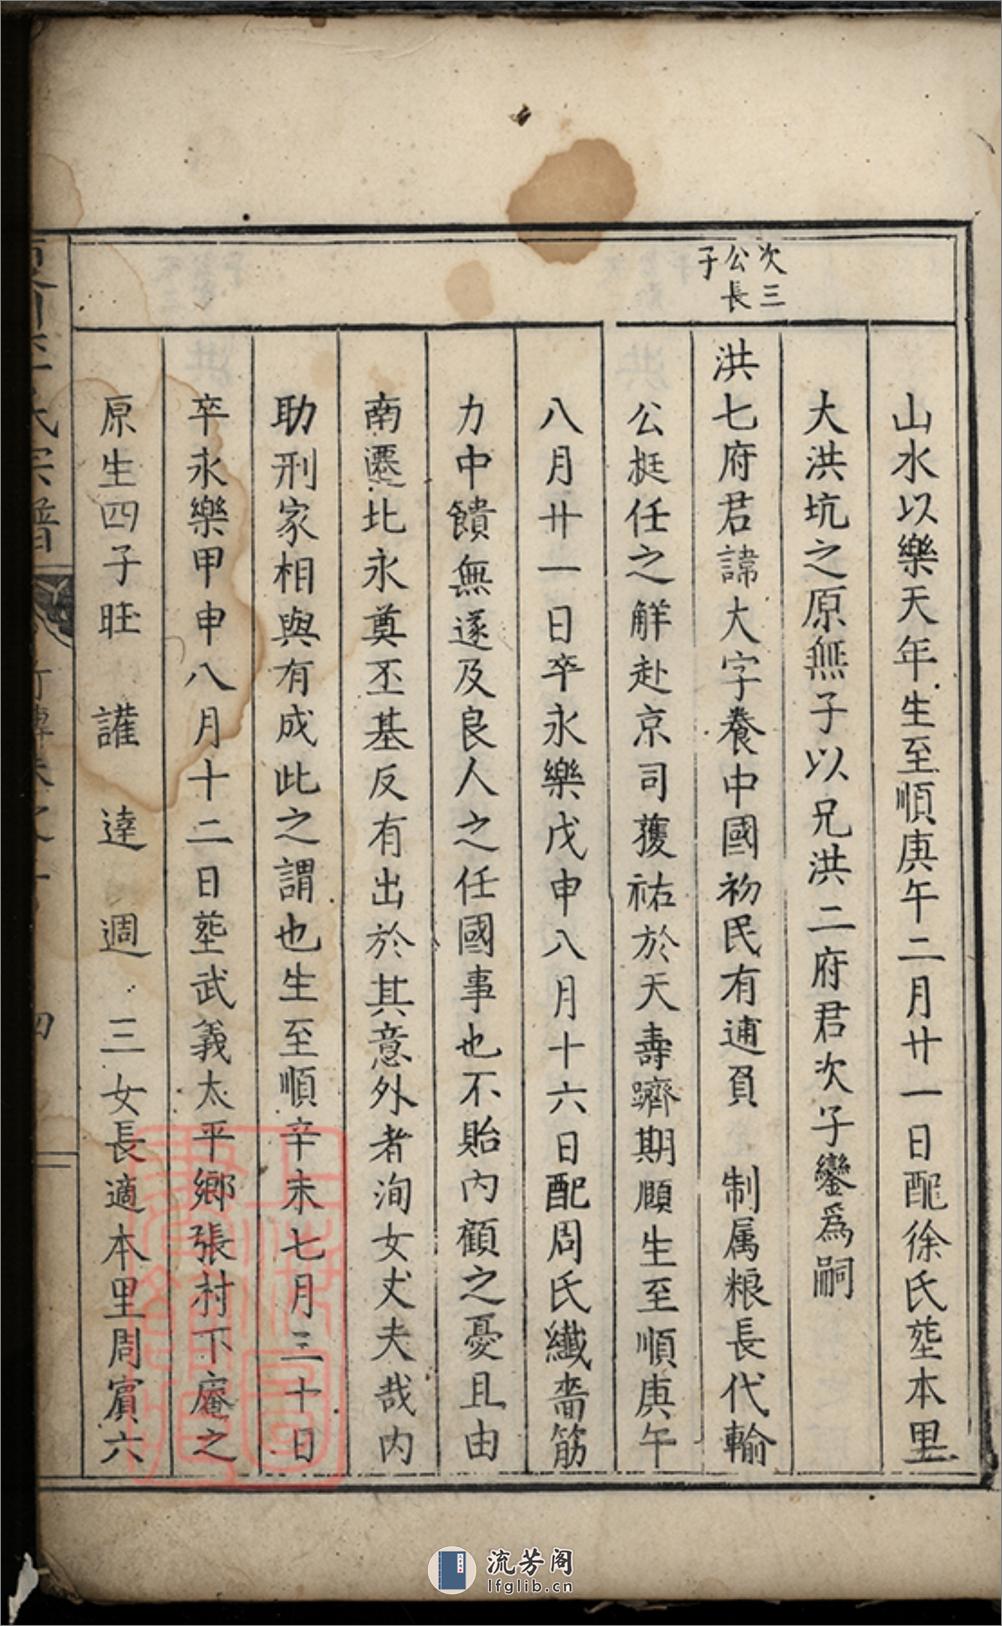 次三
公長
子
山水以樂天年生至順庚午二月廿一日配徐氏塟本里
大洪坑之原無子以兄洪二府君次子鑾為嗣
洪七府君諱大字養中國初民有逋負 制属粮長代輸
公挺任之解赴京司獲祐於天壽躋期頤生至順庚午
八月廿一日卒永樂戊申八月十六日配周氏纖嗇筋
力中饋無遂及良人之任國事也不貽內顧之憂且由
南遷北永奠丕基反有出於其意外者洵女丈夫哉内
助刑家相與有成此之謂也生至順辛未七月三十日
卒永樂甲申八月十二日塟武義太平鄉張村下庵之
原生四子旺 讙 逹 週 三女長適本里周賔六
氏宗譜
四
流芳阁
lfglib.cn